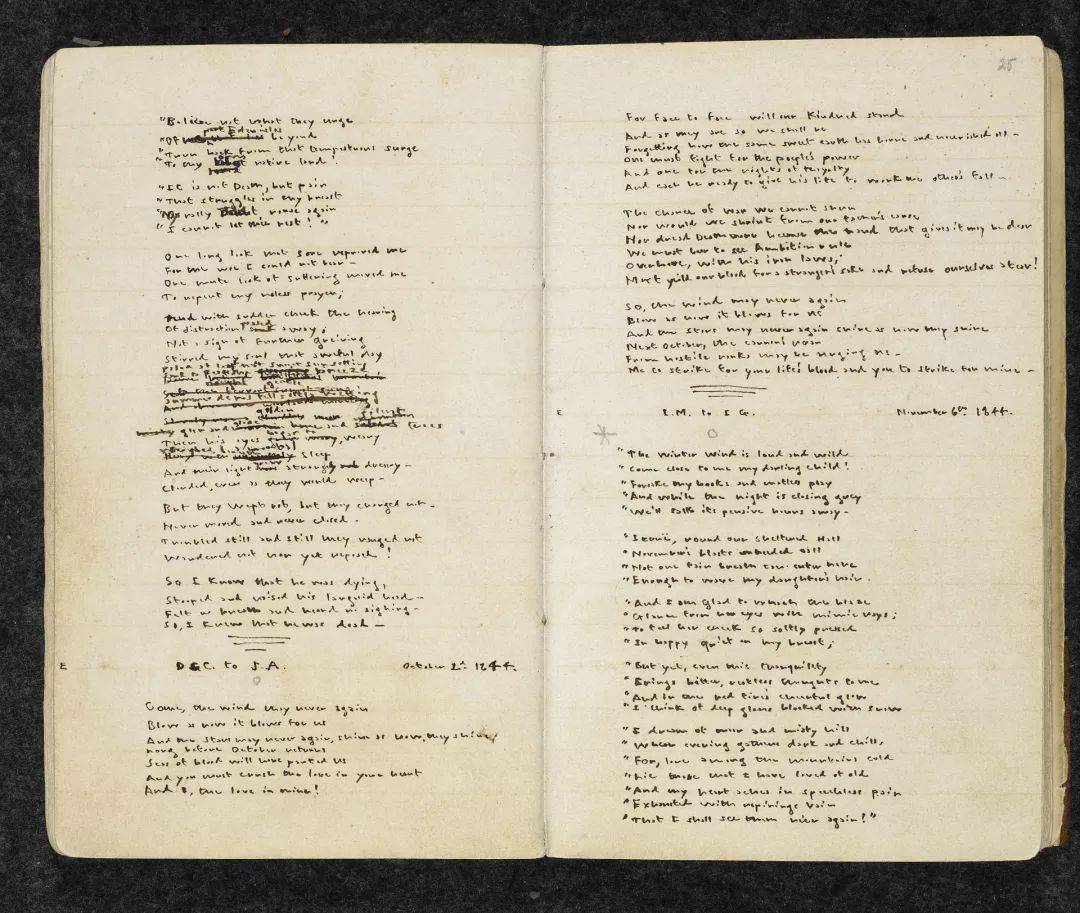 "Believe not what they urge
past Eden isles
"Of beyond
"Turn back from that tempestuous surge
"To thy native land!
"It is not Death, but pain
"That struggles in thy breast
"Nay rally, rouse again
"I cannot let thee rest!"
One long look that sore reproved me
For the woe I could not bear -
One mute look of suffering moved me
To repent my useless prayer;
And with sudden check the heaving
Of distraction passed away;
Not a sign of further grieving
Stirred my soul that awful day
Paled at last the sweet sun setting
Summer dews fell softly wetting
glen and glade and silent trees
Then his eyes began to weary,
Weighed beneath a mortal sleep
And their light grew strangely dreary -
Clouded, even as they would weep -
But they wept not, but they changed not -
Never moved and never closed -
Troubled still and still they ranged not
Wandered not nor yet reposed!
So I knew that he was dying,
Stooped and raised his languid head -
Felt no breath and heard no sighing -
So, I knew that he was dead -
E
D.G.C. to J.A.
October 2d 1844.
Come, the wind may never again
Blow as now it blows for us
And the stars may never again, shine as now, they shine;
Long before October returns
Seas of blood will have parted us
And you must crush the love in your heart
And I, the love in mine!
25
For face to face will our Kindred stand
And as they are so we shall be
Forgetting how the same sweet earth has borne and nourished all -
One must fight for the people's power
And one for the rights of royalty
And each be ready to give his life to work the other's fall -
The chance of war we cannot shun
Nor would we shrink from our father's cause
Nor dread Death more because the hand that gives it may be dear
We must bear to see Ambition rule
Over Love, with his iron laws;
Must yield our blood for a stranger's sake and refuse ourselves a tear!
So, the wind may never again
Blow as now it blows for us
And the stars may never again shine as now they shine
Next October, the cannon's roar
From hostile ranks may be urging us -
Me to strike for your life's blood and you to strike for mine -
E
I.M. to I G.
November 6th 1844.
"The winter wind is loud and wild
"Come close to me my darling child!
"Forsake thy books and mateless play
"And while the night is closing grey
"We'll talk its pensive hours away -
"Iernë, round our sheltered hall
"November's blasts unheeded call
"Not one faint breath can enter here
"Enough to wave my daughter's hair.
"And I am glad to watch the blaze
"Glance from her eyes with mimic rays;
"To feel her cheek so softly pressed
"In happy quiet on my breast;
"But yet, even this tranquillity
"Brings bitter, restless thoughts to me
"And in the red fire's cheerful glow
"I think of deep glens blocked with snow
"I dream of moor and misty hill
"Where evening gathers dark and chill,
"For, lone among the mountains cold
"Lie those that I have loved of old
"And my heart aches in speechless pain
"Exhausted with repinings vain
"That I shall see them ne'er again!"